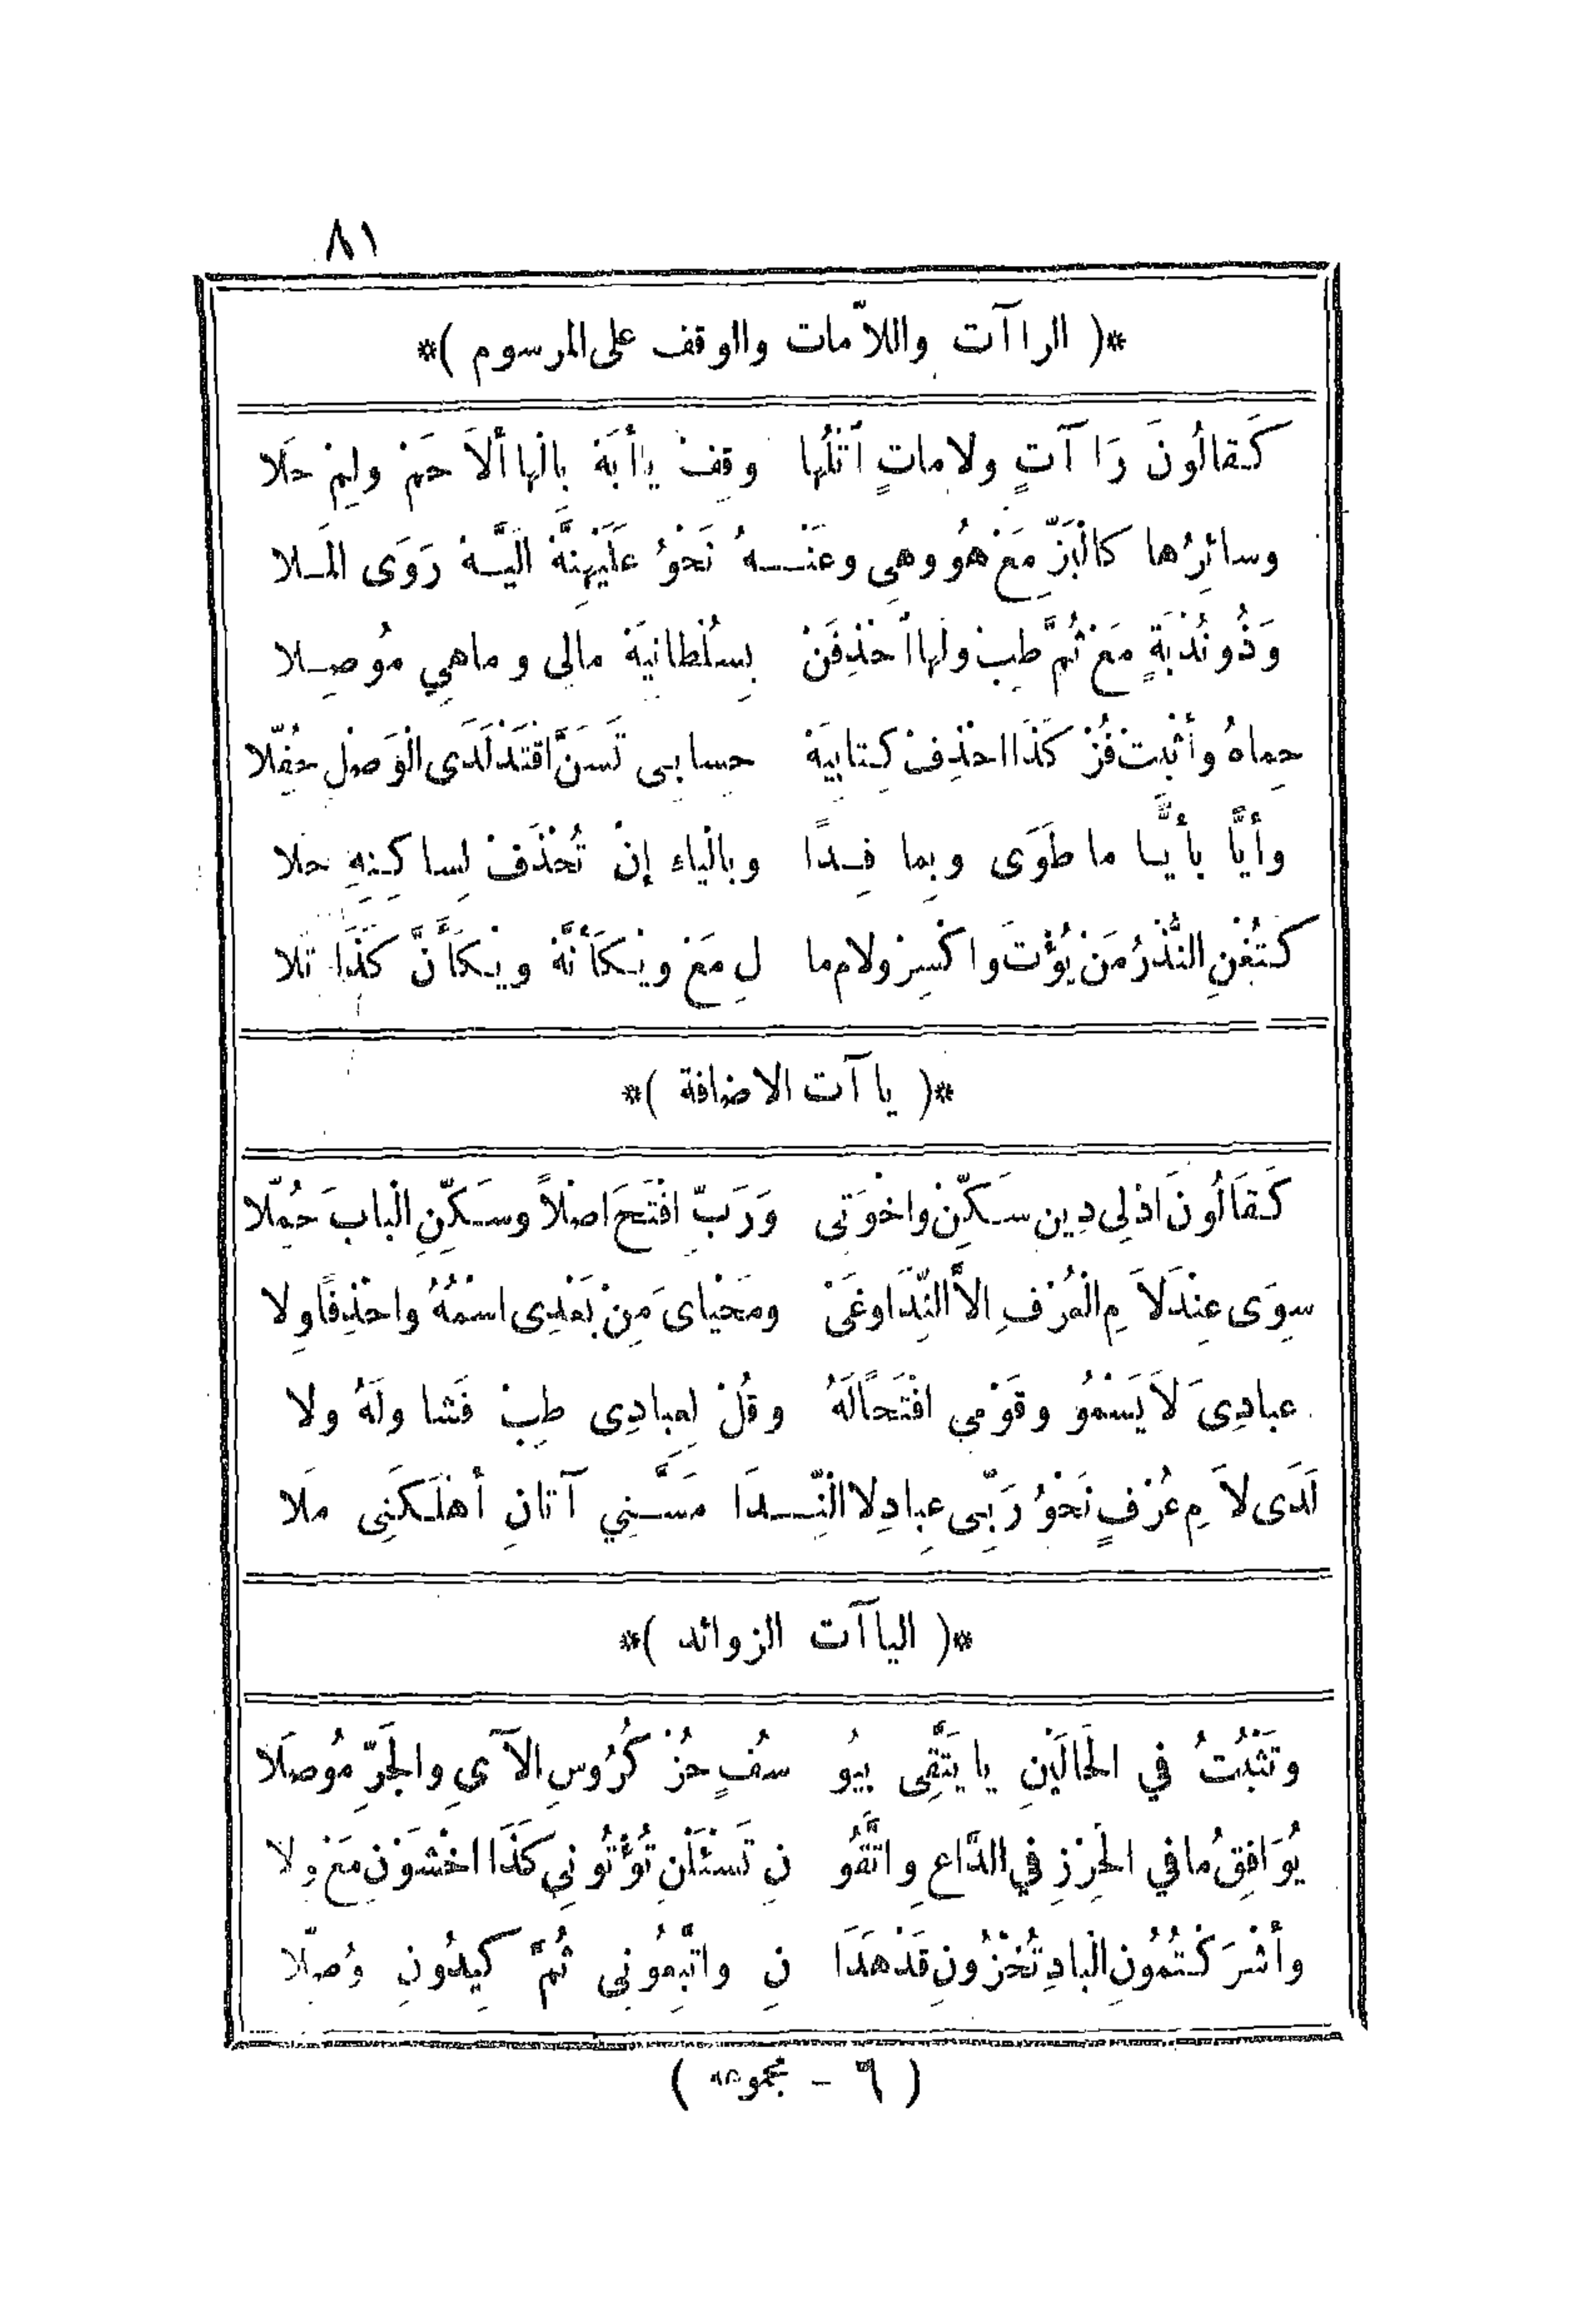 ٨١
*( الراآت واللاّمات والوقف على المرسوم )*
كَقالُونَ رَاآتٍ ولاماتٍ اُتْلُها وقِفْ ياأَبَهْ بِالْها أَلاَ حَمْ ولِمْ حَلا
وسائِرُها كالْبَزِّ مَعْ هُو وهِي وعَنْـهُ نَحْوُ عَلَيْهِنَّهْ الَيَّـهْ رَوَى المَـلا
وَذُو نُدْبَةٍ مَعْ ثُمَّ طِبْ ولَها احْذِفَنْ بِسُلْطانِيَهْ مالِي وماهِي مُوصِـلا
حِماهُ وأثْبِتْ فُزْ كَذَا احْذِفْ كِتابِيَهْ حِسابِى تَسَنَّ اقْتَدْ لَدَى الْوَصْلِ حُفِّلا
وأيًّا بأيًّـا ما طَوَى وبِما فِـدًا وبالْياءِ إنْ تُحْذَفْ لِساكِنِهِ حلا
كتُغْنِ النُّذُرُ مَنْ يُؤْتَ واكْسِرْ ولام ما لِ مَعْ ويْكَأَنَّهْ ويْكَأَنَّ كَذَا تَلا
*( ياآت الاضافة )*
كَقَالُونَ ادْ لِى دِينِ سَكِّنْ واخْوَتِى وَرَبِّ افْتَحَ اصْلاً وسَكِّنِ الْبابَ حُمِّلا
سِوَى عِنْدَ لاَمِ الْعُرْفِ الاَّ النِّدَا وغَىْ ومَحْياىَ مِنْ بَعْدِى اسْمُهُ واحْذِفًا وِلا
عبادِىَ لاَ يَسْمُو وقَوْمِي افْتَحًا لَهُ وقُلْ لِعِبادِى طِبْ فَشا ولَهُ ولا
لَدَى لاَمِ عُرْفٍ نَحْوُ رَبِّى عِبادِ لا النِّـدَا مَسَّـنِي آتانِ أَهْلَكَنِى مَلا
*( الياآت الزوائد )*
وتَثْبُتُ في الْحالَيْنِ يا يَتَّقِى بِيُو سُفٍ حُزْ كَرُوسِ الآيِ والْحَبْرُ مُوصِلا
يُوَافِقُ ما في الْحِرْزِ في الدَّاعِ واتَّقُو نِ تَسْئَلْنِ تُؤْتُونِي كَذَا اخْشَوْنِ مَعْ وِلا
وأَشْرَكْتُمُونِ الْبادِ تُخْزُونِ قَدْ هَدَا نِ واتَّبِعُونِى ثُمَّ كِيدُونِ وُصِّلا
( ٦ - مجموعه )